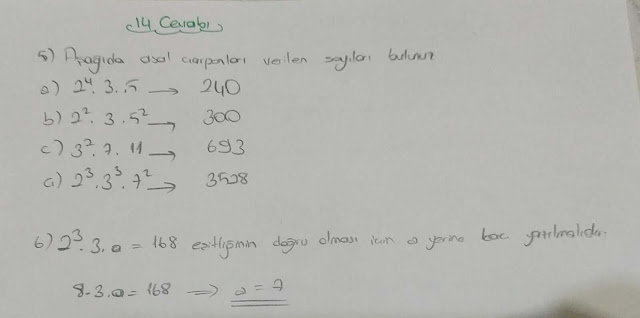 14 Cevabı
5) Aşağıda asal çarpanları verilen sayıları bulunuz
a) 2⁴.3.5 → 240
b) 2².3.5² → 300
c) 3².7.11 → 693
d) 2³.3³.7² → 3528
6) 2³.3.a = 168 eşitliğinin doğru olması için a yerine kaç yazılmalıdır.
8.3.a = 168 ⟹ a = 7